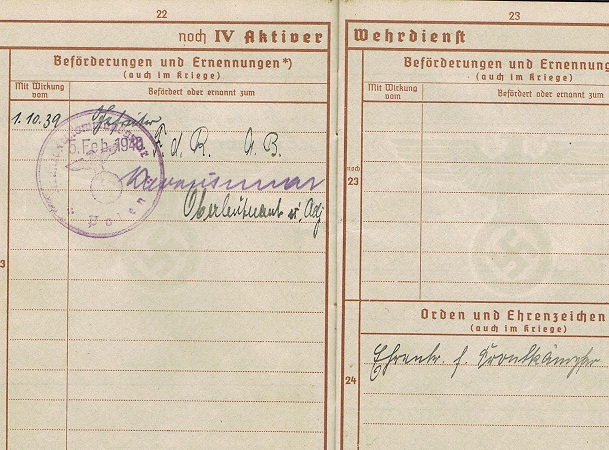 22
noch IV Aktiver
Beförderungen und Ernennungen*)
(auch im Kriege)
Mit Wirkung vom
Befördert oder ernannt zum
1.10.39 Gefreiter
5. Feb. 1940
d. R. A. B.
Oberleutnant u. Adj
23
Wehrdienst
Beförderungen und Ernennung
(auch im Kriege)
Mit Wirkung vom
Befördert oder ernannt zum
noch
23
Orden und Ehrenzeichen
(auch im Kriege)
24
Ehrenkr. f. Frontkämpfer